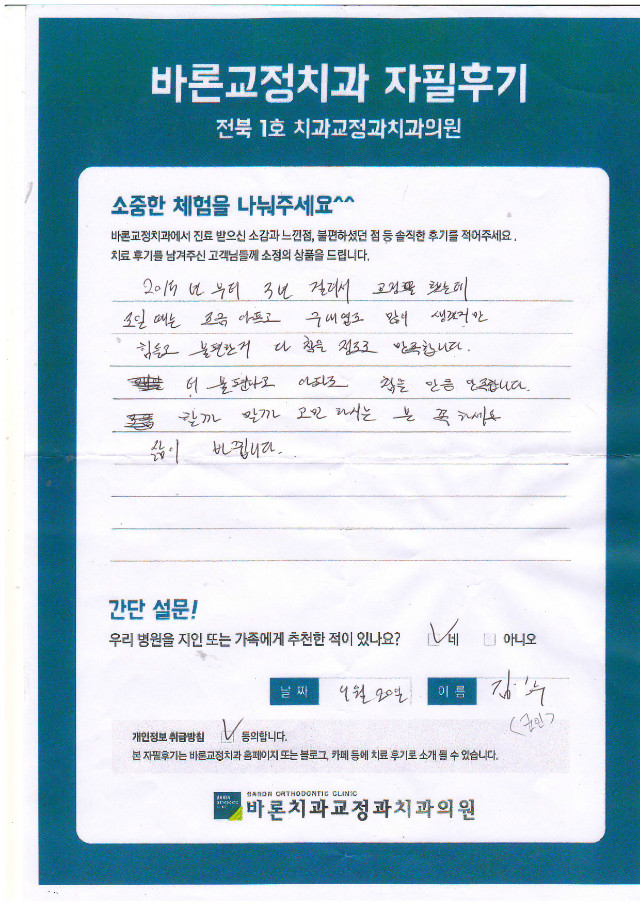 바론교정치과 자필후기
전북 1호 치과교정과치과의원
소중한 체험을 나눠주세요^^
바론교정치과에서 진료 받으신 소감과 느낀점, 불편하셨던 점 등 솔직한 후기를 적어주세요.
치료 후기를 남겨주신 고객님들께 소정의 상품을 드립니다.
년 부터 3년 걸려서 교정을 했는데
조일 때는 조금 아프고 구내염도 많이 생겼지만
힘들고 불편한거 다 참을 정도로 만족합니다.
더 불편하고 아파도 참을 만큼 만족합니다.
할까 말까 고민 하시는 분 꼭 하세요
삶이 바뀝니다.
간단 설문!
우리 병원을 지인 또는 가족에게 추천한 적이 있나요? 네 아니오
날짜 월 20일 이름 김
개인정보 취급방침 동의합니다.
본 자필후기는 바론교정치과 홈페이지 또는 블로그, 카페 등에 치료 후기로 소개 될 수 있습니다.
BARON ORTHODONTIC CLINIC
바론치과교정과치과의원